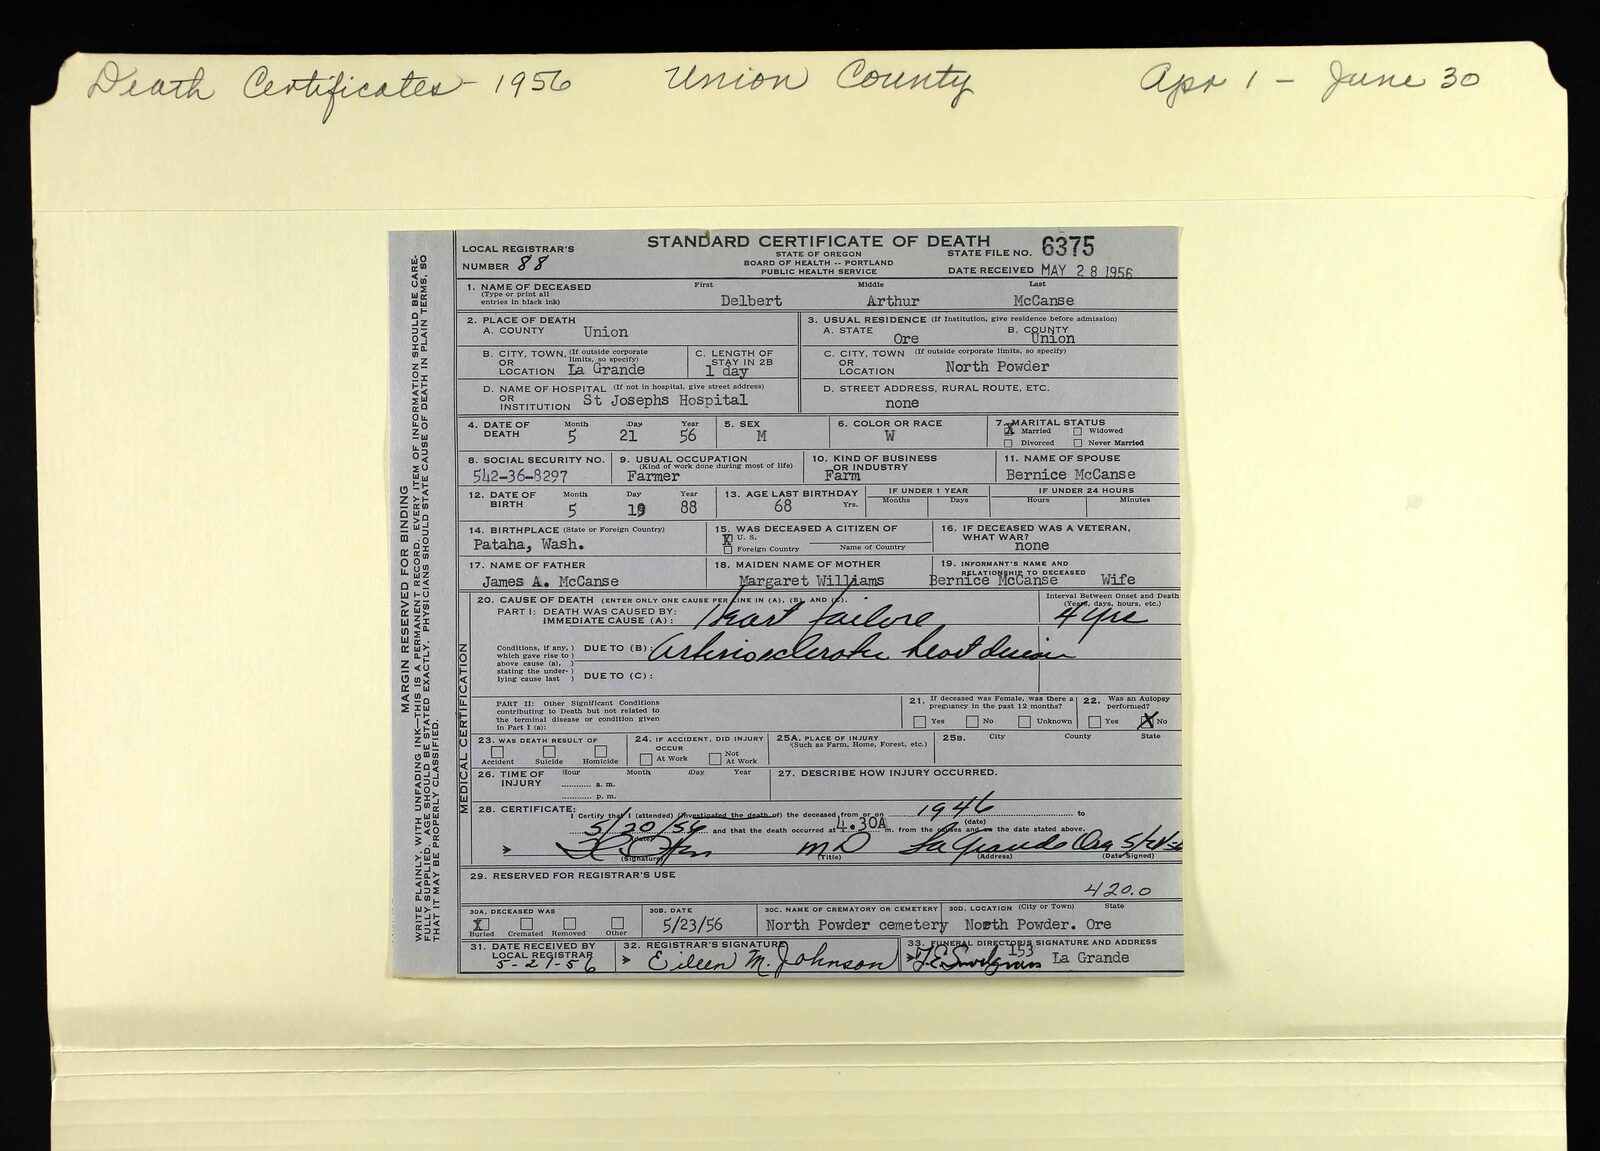 Death Certificates - 1956 Union County Apr 1 - June 30
STANDARD CERTIFICATE OF DEATH
STATE OF OREGON
BOARD OF HEALTH -- PORTLAND
PUBLIC HEALTH SERVICE
LOCAL REGISTRAR'S
NUMBER 88
STATE FILE NO. 6375
DATE RECEIVED MAY 28 1956
MARGIN RESERVED FOR BINDING
WRITE PLAINLY, WITH UNFADING INK—THIS IS A PERMANENT RECORD. EVERY ITEM OF INFORMATION SHOULD BE CARE-
FULLY SUPPLIED. AGE SHOULD BE STATED EXACTLY. PHYSICIANS SHOULD STATE CAUSE OF DEATH IN PLAIN TERMS, SO
THAT IT MAY BE PROPERLY CLASSIFIED.
1. NAME OF DECEASED First Middle Last
(Type or print all
entries in black ink) Delbert Arthur McCanse
2. PLACE OF DEATH
A. COUNTY Union
3. USUAL RESIDENCE (If Institution, give residence before admission)
A. STATE B. COUNTY
Ore Union
B. CITY, TOWN, (If outside corporate
OR limits, so specify)
LOCATION La Grande
C. LENGTH OF
STAY IN 2B
1 day
C. CITY, TOWN (If outside corporate limits, so specify)
OR
LOCATION North Powder
D. NAME OF HOSPITAL (If not in hospital, give street address)
OR
INSTITUTION St Josephs Hospital
D. STREET ADDRESS, RURAL ROUTE, ETC.
none
4. DATE OF Month Day Year
DEATH 5 21 56
5. SEX
M
6. COLOR OR RACE
W
7. MARITAL STATUS
X Married Widowed
Divorced Never Married
8. SOCIAL SECURITY NO.
542-36-8297
9. USUAL OCCUPATION
(Kind of work done during most of life)
Farmer
10. KIND OF BUSINESS
OR INDUSTRY
Farm
11. NAME OF SPOUSE
Bernice McCanse
12. DATE OF Month Day Year
BIRTH 5 19 88
13. AGE LAST BIRTHDAY
68 Yrs.
IF UNDER 1 YEAR
Months Days
IF UNDER 24 HOURS
Hours Minutes
14. BIRTHPLACE (State or Foreign Country)
Pataha, Wash.
15. WAS DECEASED A CITIZEN OF
X U. S.
Foreign Country Name of Country
16. IF DECEASED WAS A VETERAN,
WHAT WAR?
none
17. NAME OF FATHER
James A. McCanse
18. MAIDEN NAME OF MOTHER
Margaret Williams
19. INFORMANT'S NAME AND
RELATIONSHIP TO DECEASED
Bernice McCanse Wife
MEDICAL CERTIFICATION
20. CAUSE OF DEATH (ENTER ONLY ONE CAUSE PER LINE IN (A), (B), AND (C).
Interval Between Onset and Death
(Years, days, hours, etc.)
PART I: DEATH WAS CAUSED BY:
IMMEDIATE CAUSE (A): Heart failure 4 yrs
Conditions, if any, )
which gave rise to )
above cause (a), )
stating the under- )
lying cause last )
DUE TO (B): Arteriosclerotic heart disease
DUE TO (C):
PART II: Other Significant Conditions
contributing to Death but not related to
the terminal disease or condition given
in Part I (a):
21. If deceased was Female, was there a
pregnancy in the past 12 months?
Yes No Unknown
22. Was an Autopsy
performed?
Yes X No
23. WAS DEATH RESULT OF
Accident Suicide Homicide
24. IF ACCIDENT, DID INJURY
OCCUR
At Work Not
At Work
25A. PLACE OF INJURY
(Such as Farm, Home, Forest, etc.)
25B. City County State
26. TIME OF Hour Month Day Year
INJURY a. m.
p. m.
27. DESCRIBE HOW INJURY OCCURRED.
28. CERTIFICATE:
I Certify that I (attended) (investigated the death of) the deceased from or on 1946 to
(date)
5/20/56 and that the death occurred at 4.30A m. from the causes and on the date stated above.
(date)
MD La Grande Ore 5/21/56
(Signature) (Title) (Address) (Date Signed)
29. RESERVED FOR REGISTRAR'S USE
420.0
30A. DECEASED WAS
X
Buried Cremated Removed Other
30B. DATE
5/23/56
30C. NAME OF CREMATORY OR CEMETERY
North Powder cemetery
30D. LOCATION (City or Town) State
North Powder. Ore
31. DATE RECEIVED BY
LOCAL REGISTRAR
5-21-56
32. REGISTRAR'S SIGNATURE
Eileen M. Johnson
33. FUNERAL DIRECTOR'S SIGNATURE AND ADDRESS
153
La Grande